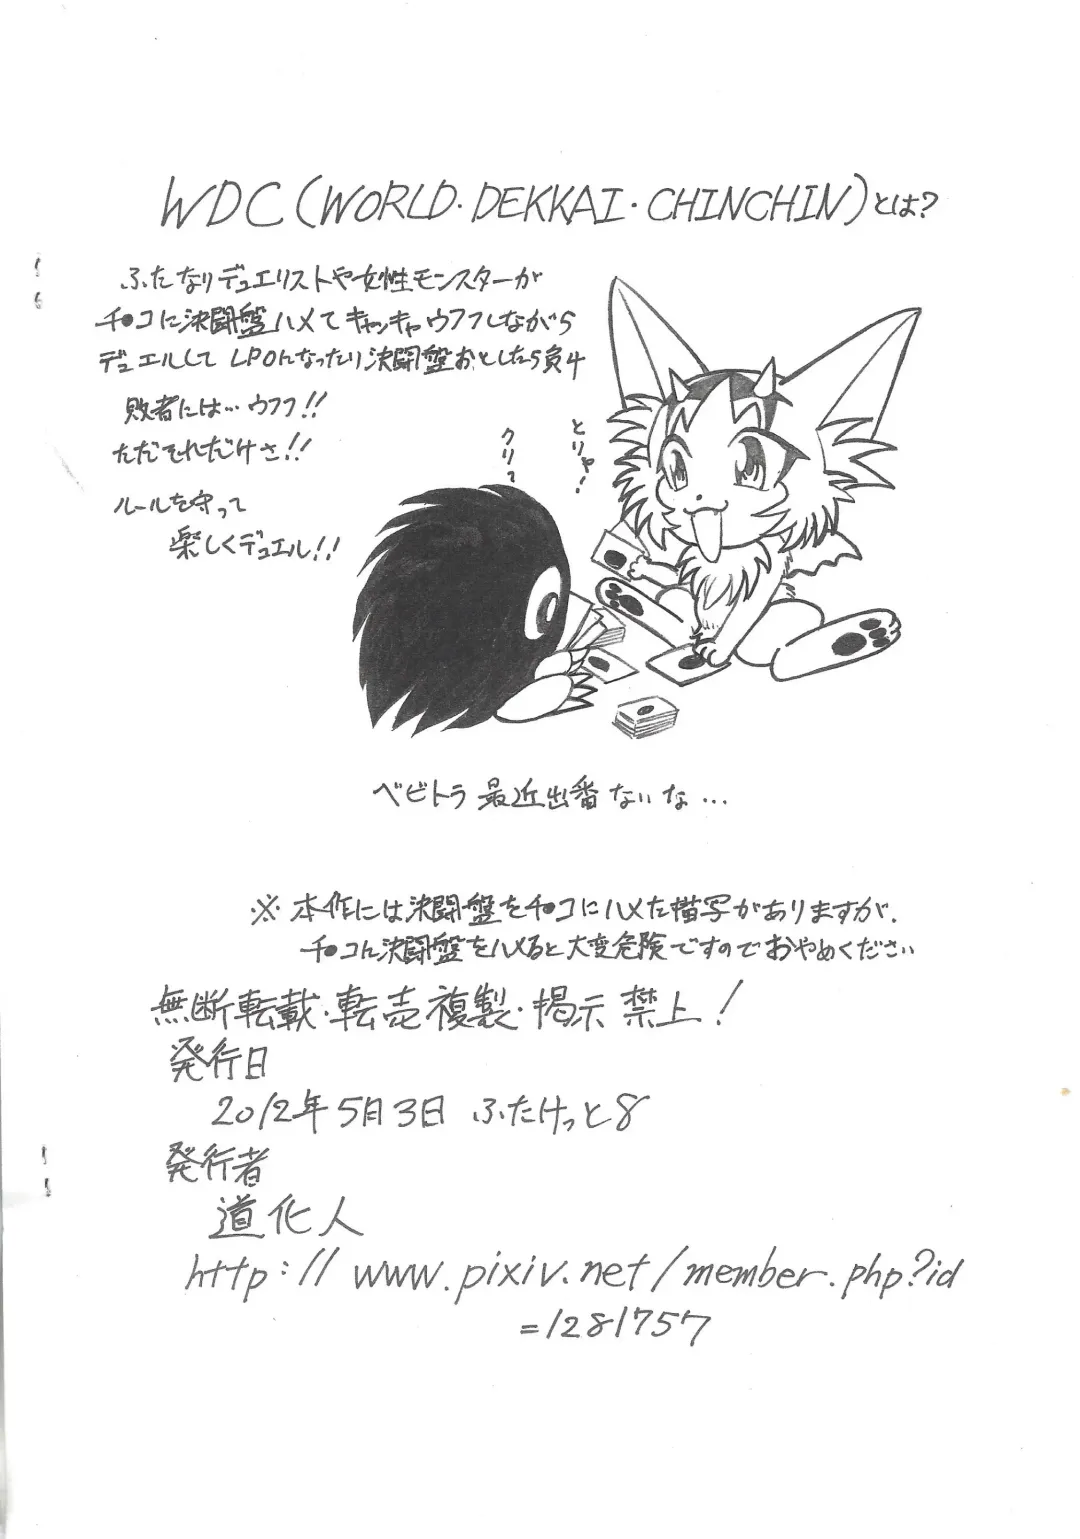 WDC(WORLD・DEKKAI・CHINCHIN)とは?
ふたなりデュエリストや女性モンスターが
チ●コに決闘盤ハメてキャッキャウフフしながら
デュエルして LP0んなったり決闘盤おとしたら負け
敗者には…ウフフ!!
ただそれだけさ!!
ルールを守って
楽しくデュエル!!
クリ〜
とりゃ!
ベビトラ 最近出番ないな…
※本作には決闘盤をチ●コにハメた描写がありますが、
チ●コに決闘盤をハメると大変危険ですのでおやめください
無断転載・転売複製・掲示禁止!
発行日
2012年5月3日 ふたけっと8
発行者
道化人
http://www.pixiv.net/member.php?id
=1281757